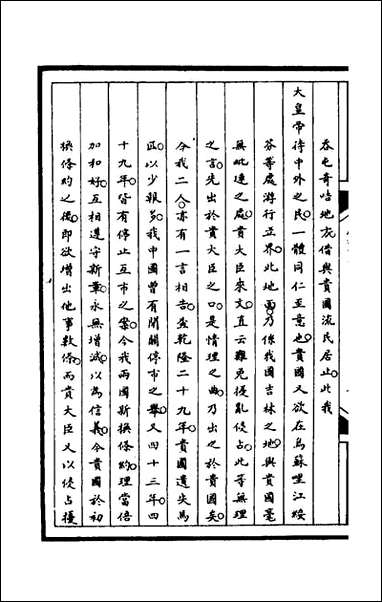 吞屯奇啥地方借與貴國流民居止此我
大皇帝待中外之民一體同仁至意也貴國又欲在烏蘇哩江綏
芬等處游行立界此地面乃係我國吉林之地與貴國毫
無毗連之處貴大臣來文直云難免侵亂侵占此等無理
之言先出於貴大臣之口是情理之曲乃出之於貴國矣
今我二人亦有一言相告查乾隆二十九年貴國遺失馬
匹以少報多我中國曾有閉關停市之舉又四十三年四
十九年皆有停止互市之案今我兩國斯換條約理當倍
加和好互相遵守斯單永無增減以為信義今貴國於初
換條約之後即欲增出他事數條而貴大臣又以侵占擾